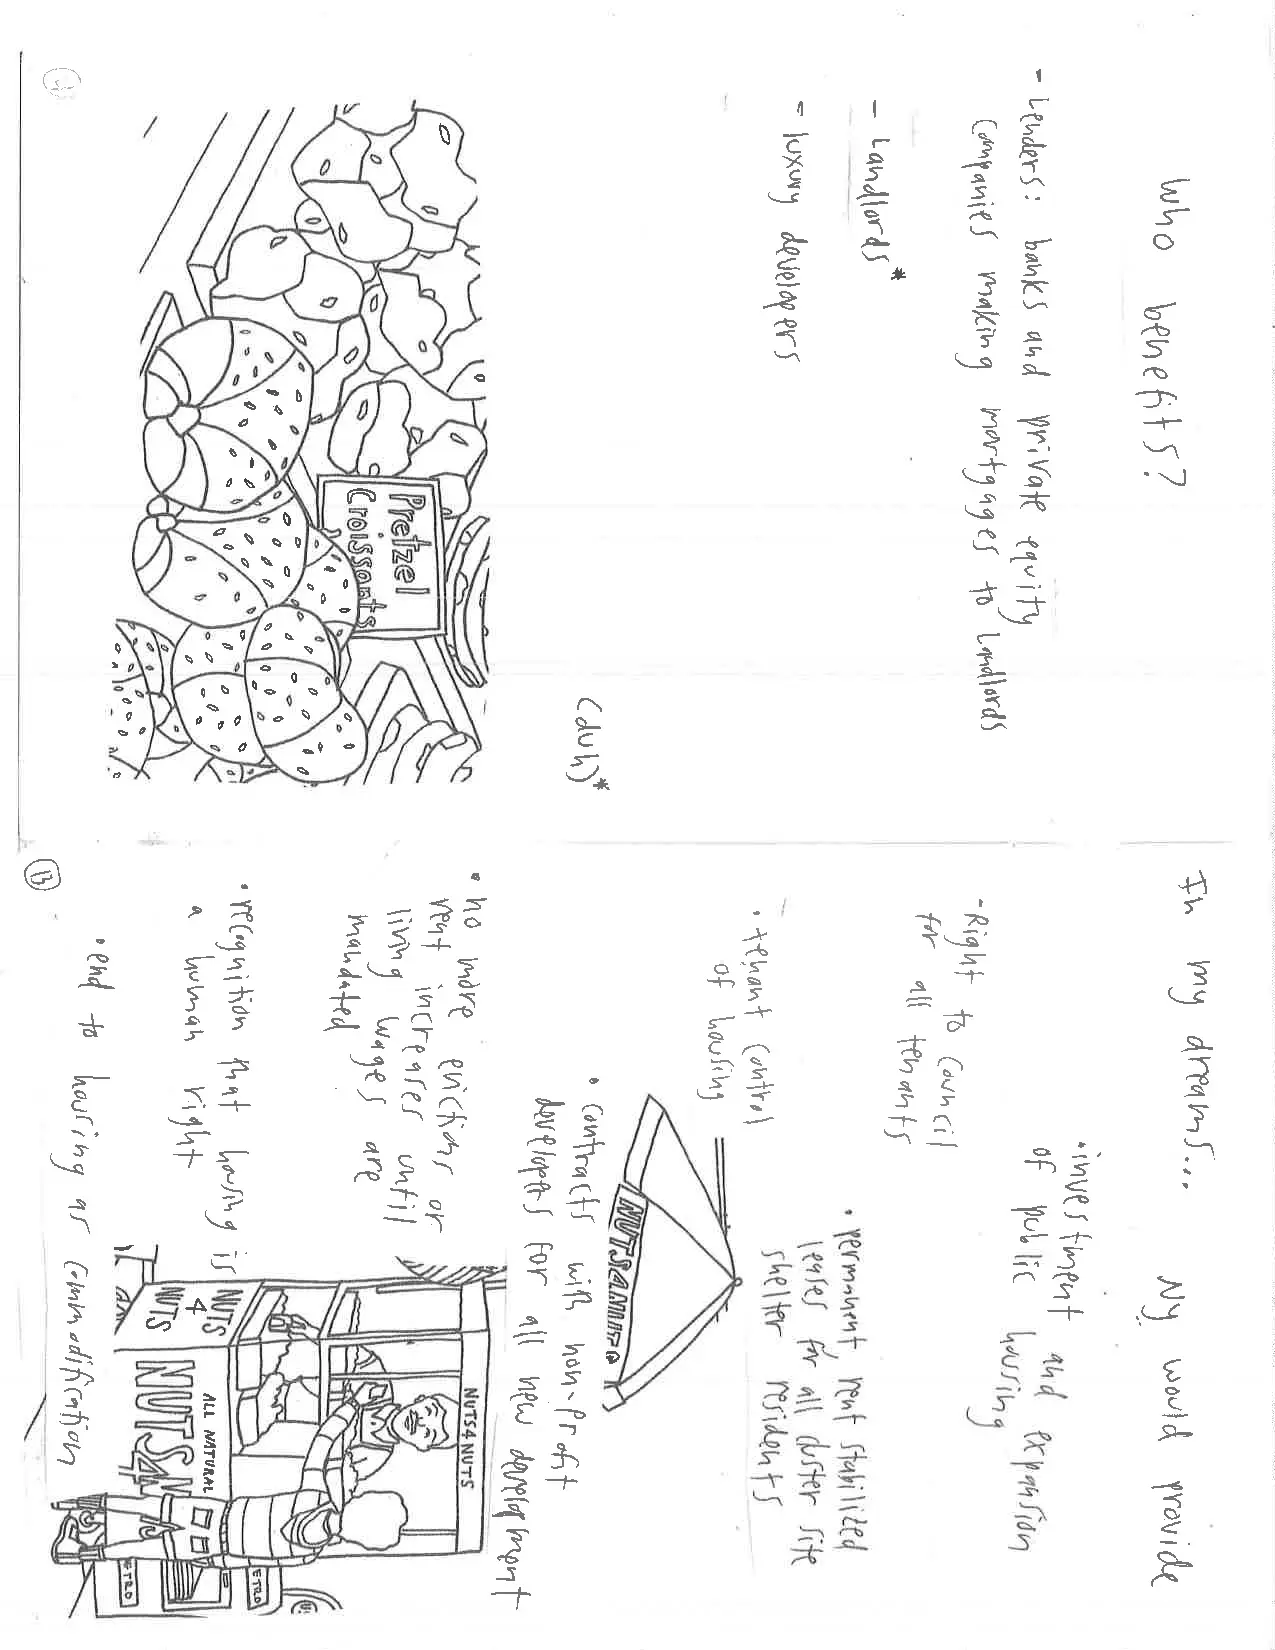 Who benefits?
- Lenders: banks and private equity
companies making mortgages to Landlords
- Landlords*
- luxury developers
(duh)*
Pretzel
Croissants
In my dreams... Ny would provide
• investment and expansion
of public housing
- Right to Council
for all tenants
• permanent rent stabilized
leases for all cluster site
shelter residents
• tenant control
of housing
• contracts with non-profit
developers for all new development
• no more evictions or
rent increases until
living wages are
mandated
• recognition that housing is
a human right
• end to housing as commodification
NUTS4NUTS
NUTS4NUTS
NUTS
4
NUTS
ALL NATURAL
NUTS4N
ETRO
ETRO
13